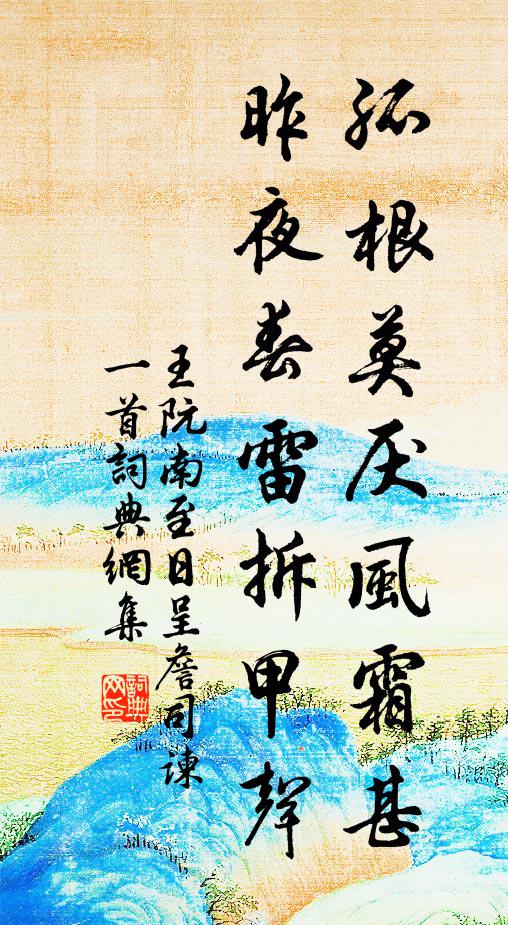 孤根莫厌風霜甚
昨夜春雷拆甲聲
王阮南至日呈詹司諫
一首詞典網集
詞典網印